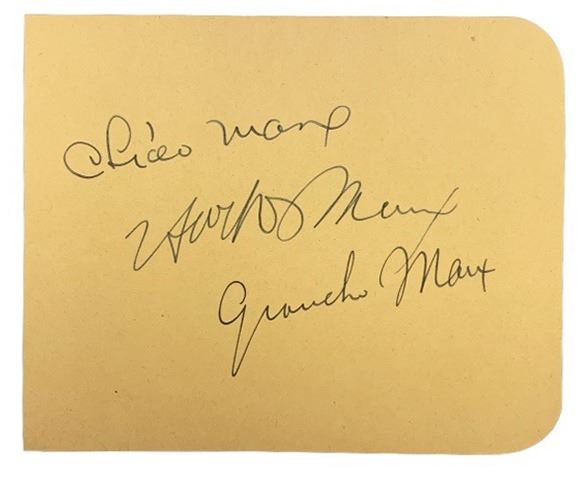 Chico Marx
Harpo Marx
Groucho Marx